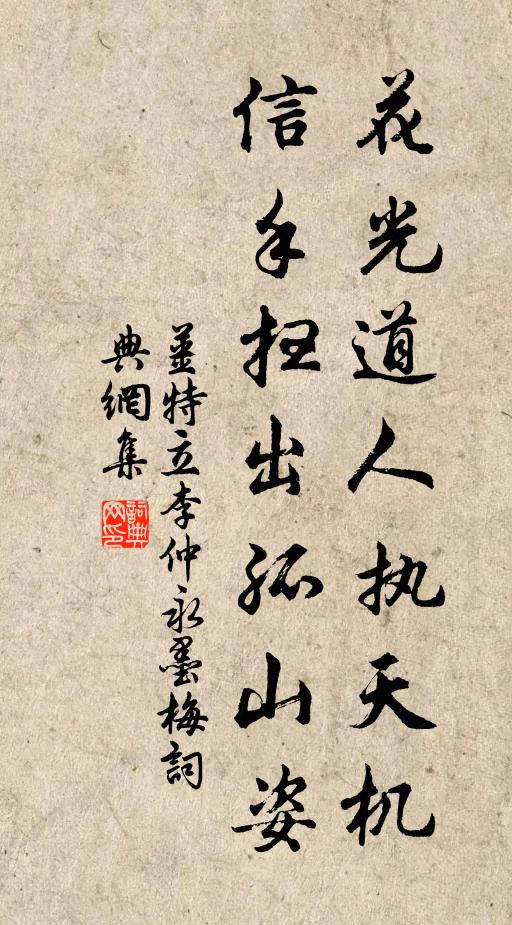 花光道人执天机
信手扫出孤山姿
姜特立李仲永墨梅詞
典網集
詞典網印